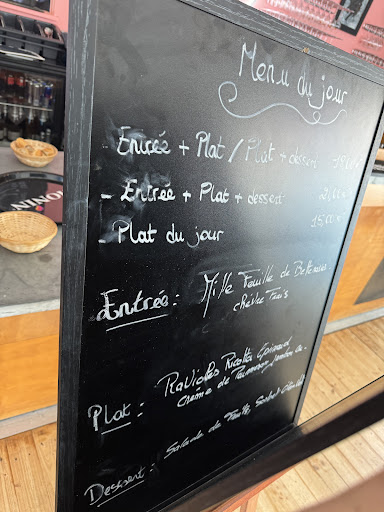 Menu du jour
- Entrée + Plat / Plat + dessert
- Entrée + Plat + dessert
- Plat du jour 15,00 €
Entrée : Mille Feuille de Betterave
chèvre Frais
Plat : Ravioles Ricotta Epinard
Crème de Parmesan jambon
Dessert : Salade de Fruits Sorbet
NINI